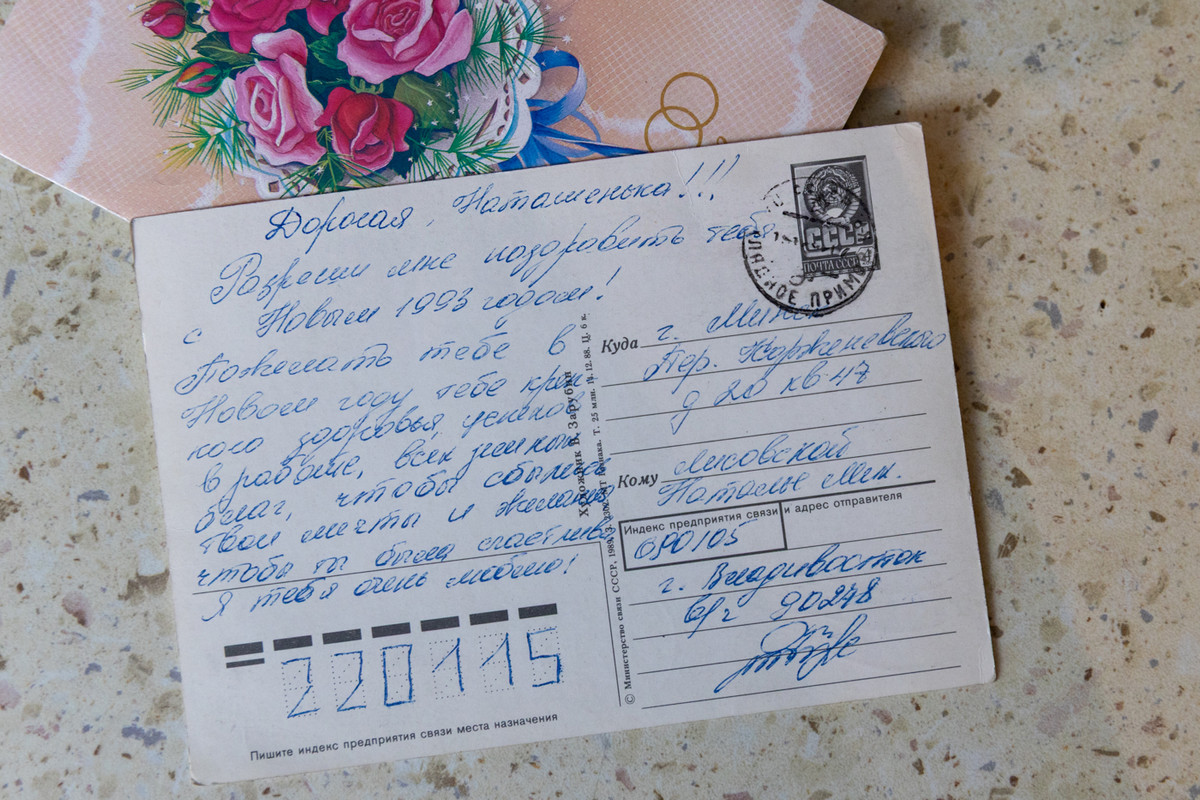 Дорогая, Наташенька!!!
Разреши мне поздравить тебя
с Новым 1993 годом!
Пожелать тебе в
Новом году тебе креп
кого здоровья, успехов
в работе, всех земных
благ, чтобы сбылись
твои мечты и желания
чтобы ты была счастлива
Я тебя очень люблю!
220115
Пишите индекс предприятия связи места назначения
Художник В. Зарубин
© Министерство связи СССР, 1989. З. Гознака. Т. 25 млн. 14.12.88. Ц. 6 к.
СССР
ПОЧТА СССР
ПРИМ
Куда г. Минск
Пер. Корженевского
д 20 кв. 47
Кому Лисовской
Наталье Мих.
Индекс предприятия связи и адрес отправителя
690105
г. Владивосток
в/ч 90248